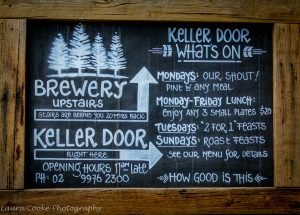 BREWERY
UPSTAIRS
STAIRS ARE BEHIND YOU 20 MTRS BACK
KELLER DOOR
RIGHT HERE
OPENING HOURS 11am late
PH: 02 9976 2300
KELLER DOOR
WHAT'S ON
MONDAYS: OUR SHOUT!
PINT W/ ANY MEAL
MONDAY-FRIDAY LUNCH:
ENJOY ANY 3 SMALL PLATES $20
TUESDAYS: "2 FOR 1" FEASTS
SUNDAYS: ROAST FEASTS
SEE OUR MENU FOR DETAILS
HOW GOOD IS THIS
Laura Cooke Photography